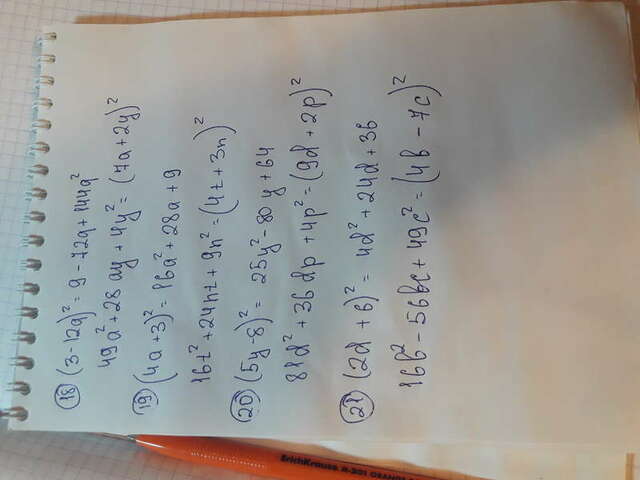 18 (3-12a)² = 9 - 72a + 144a²
49a² + 28ay + 4y² = (7a + 2y)²
19 (4a + 3)² = 16a² + 28a + 9
16t² + 24nt + 9n² = (4t + 3n)²
20 (5y-8)² = 25y² - 80y + 64
81d² + 36dp + 4p² = (9d + 2p)²
21 (2d + 6)² = 4d² + 24d + 36
16b² - 56bc + 49c² = (4b - 7c)²
ErichKrause R-301 ORANGE